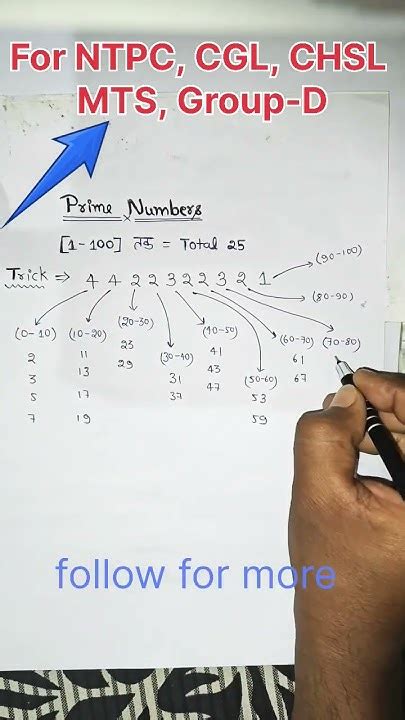 For NTPC, CGL, CHSL
MTS, Group-D
Prime Numbers
[1-100] तक = Total 25
Trick ⇒ 4 4 2 2 3 2 2 3 2 1
(90-100)
(80-90)
(0-10)
2
3
5
7
(10-20)
11
13
17
19
(20-30)
23
29
(30-40)
31
37
(40-50)
41
43
47
(50-60)
53
59
(60-70)
61
67
(70-80)
follow for more